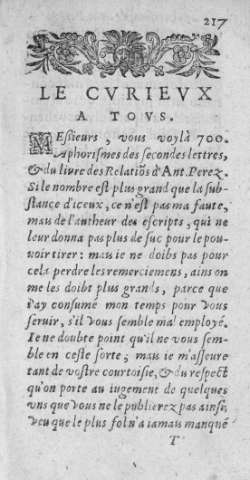 217
LE CVRIEVX
A TOVS.
MEssieurs, vous voylà 700.
Aphorismes des secondes lettres,
& du livre des Relatiõs d'Ant. Perez.
Si le nombre est plus grand que la sub-
stance d'iceux, ce n'est pas ma faute,
mais de l'autheur des escripts, qui ne
leur donna pas plus de suc pour le pou-
voir tirer : mais ie ne doibs pas pour
cela perdre les remerciemens, ains on
me les doibt plus grands, parce que
i'ay consumé mon temps pour vous
seruir, s'il vous semble mal employé.
Ie ne doubte point qu'il ne vous sem-
ble en ceste sorte, mais ie m'asseure
tant de vostre courtoisie, & du respect
qu'on porte au iugement de quelques
vns que vous ne le publierez pas ainsi,
veu que le plus fol n'a iamais manqué
T